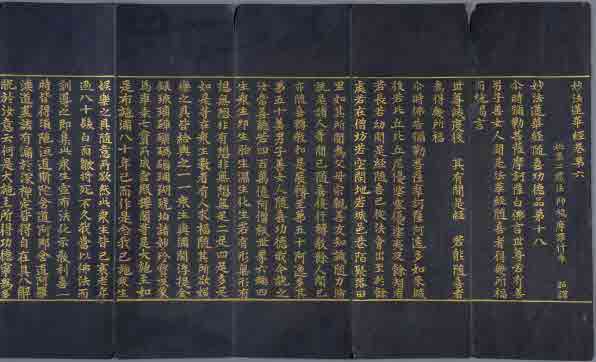 妙法蓮華經卷第六
姚秦三藏法師鳩摩羅什奉 詔譯
妙法蓮華經隨喜功德品第十八
尒時彌勒菩薩摩訶薩白佛言世尊若有善
男子善女人聞是法華經隨喜者得幾所福
而說偈言
世尊滅度後 其有聞是經 若能隨喜者
爲得幾所福
尒時佛告彌勒菩薩摩訶薩阿逸多如來滅
後若比丘比丘尼優婆塞優婆夷及餘智者
若長若幼聞是經隨喜已從法會出至於餘
處若在僧坊若空閑地若城邑巷陌聚落田
里如其所聞爲父母宗親善友知識隨力演
說是諸人等聞已隨喜復行轉教餘人聞已
亦隨喜轉教如是展轉至第五十阿逸多其
第五十善男子善女人隨喜功德我今說之
汝當善聽若四百萬億阿僧祇世界六趣四
生衆生卵生胎生濕生化生若有形無形有
想無想非有想非無想無足二足四足多足
如是等在衆生數者有人求福隨其所欲娛
樂之具皆給與之一一衆生與滿閻浮提金
銀琉璃硨磲碼碯珊瑚琥珀諸妙珍寶及象
馬車乘七寶所成宮殿樓閣等是大施主如
是布施滿八十年已而作是念我已施衆生
娛樂之具隨意所欲然此衆生皆已衰老年
過八十髮白面皺將死不久我當以佛法而
訓導之即集此衆生宣布法化示教利喜一
時皆得須陀洹道斯陀含道阿那含道阿羅
漢道盡諸有漏於深禪定皆得自在具八解
脫於汝意云何是大施主所得功德寧爲多